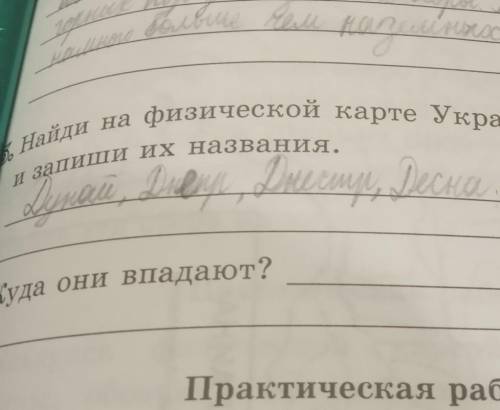 горных
намного больше чем наземных
Найди на физической карте Укра
и запиши их названия.
Дунай, Днепр, Днестр, Десна.
Куда они впадают?
Практическая раб